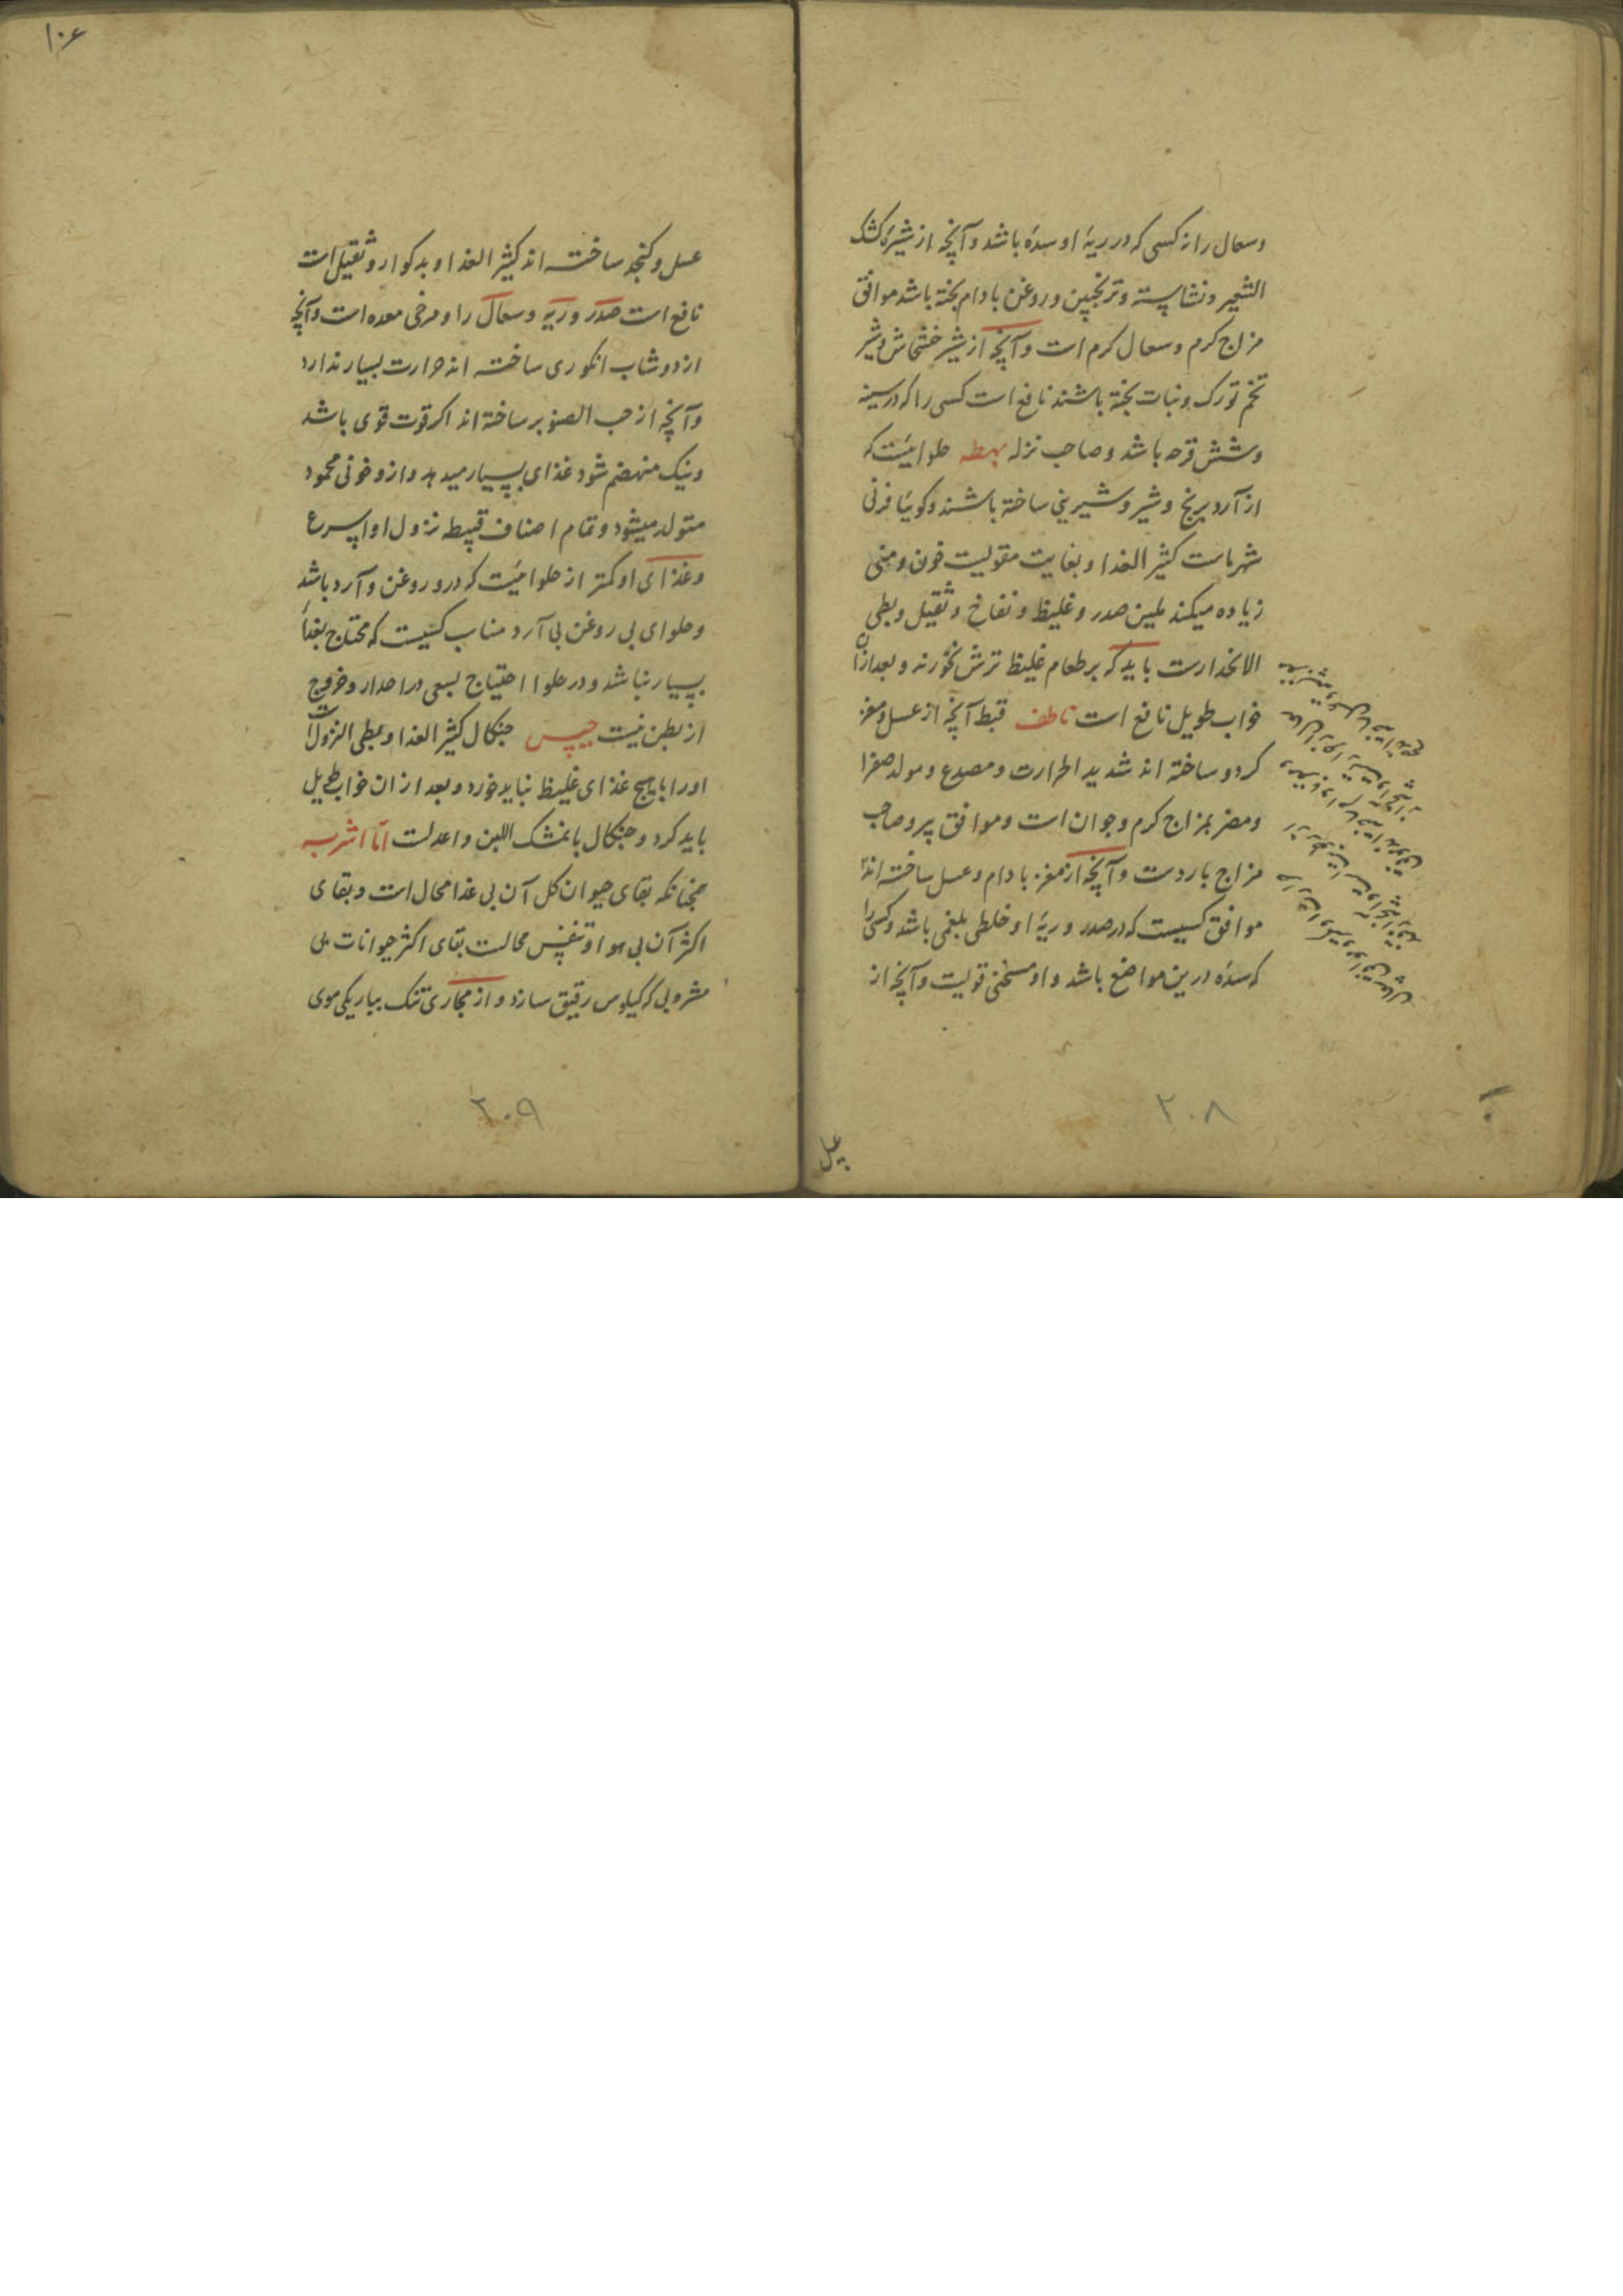 وسعال را نه کسی که در ریهٔ او سده باشد و آنچه از شیرهٔ کشک
الشعیر و نشاسته و ترنجبین و روغن بادام پخته باشد موافق
مزاج کرم و سعال کرم است و آنچه از شیر خشخاش و شیر
تخم تورک و نبات پخته باشند نافع است کسی را که در سینه
و شش قرحه باشد و صاحب نزله بهطه حلوائیست که
از آرد برنج و شیر و شیرینی ساخته باشند و کوئیا فرنی
شهر ماست کثیر الغذا و بغایت مقویست خون و منی
زیاده میکند ملین صدر و غلیظ و نفاخ و ثقیل و بطی
الانحدارست باید که بر طعام غلیظ ترش نخورند و بعد ازان
خواب طویل نافع است ناطف قبط آنچه از عسل و مغز
کردو ساخته اند شدید الحرارت و مصدع و مولد صفرا
و مضر بمزاج کرم و جوان است و موافق پیر و صاحب
مزاج باردست و آنچه از مغز بادام و عسل ساخته اند
موافق کسیست که در صدر و ریهٔ او خلطی بلغمی باشد و کسی را
که سده درین مواضع باشد و او مسخنی قویست و آنچه از
۲۰۸
۱۰۶
عسل و کنجد ساخته اند کثیر الغذا و بد کوار و ثقیل است
نافع است صدر و ریه و سعال را و مرخی معده است و آنچه
از دوشاب انکوری ساخته اند حرارت بسیار ندارد
و آنچه از حب الصنوبر ساخته اند اکر قوت قوی باشد
و نیک منهضم شود غذای بسیار میدهد و ازو خونی محمود
متولد میشود و تمام اصناف قبیطه نزول او اسرع
و غذای او کمتر از حلوائیست که درو روغن و آرد باشد
و حلوای بی روغن بی آرد مناسب کسیست که محتاج بغذای
بسیار نباشد و در حلوا احتیاج بسعی در احدار و خروج
از بطن نیست حیس جنکال کثیر الغذا و بطی النزول است
اورا با هیچ غذای غلیظ نباید خورد و بعد ازان خواب طویل
باید کرد و جنکال با نمشک اللبن و اعدلست اما اشربه
همچنانکه بقای حیوان کل آن بی غذا محال است و بقای
اکثر آن بی هوا و تنفس محالست بقای اکثر حیوانات بی
مشروبی که کیلوس رقیق سازد و از مجاری تنک بباریکی موی
۲۰۹